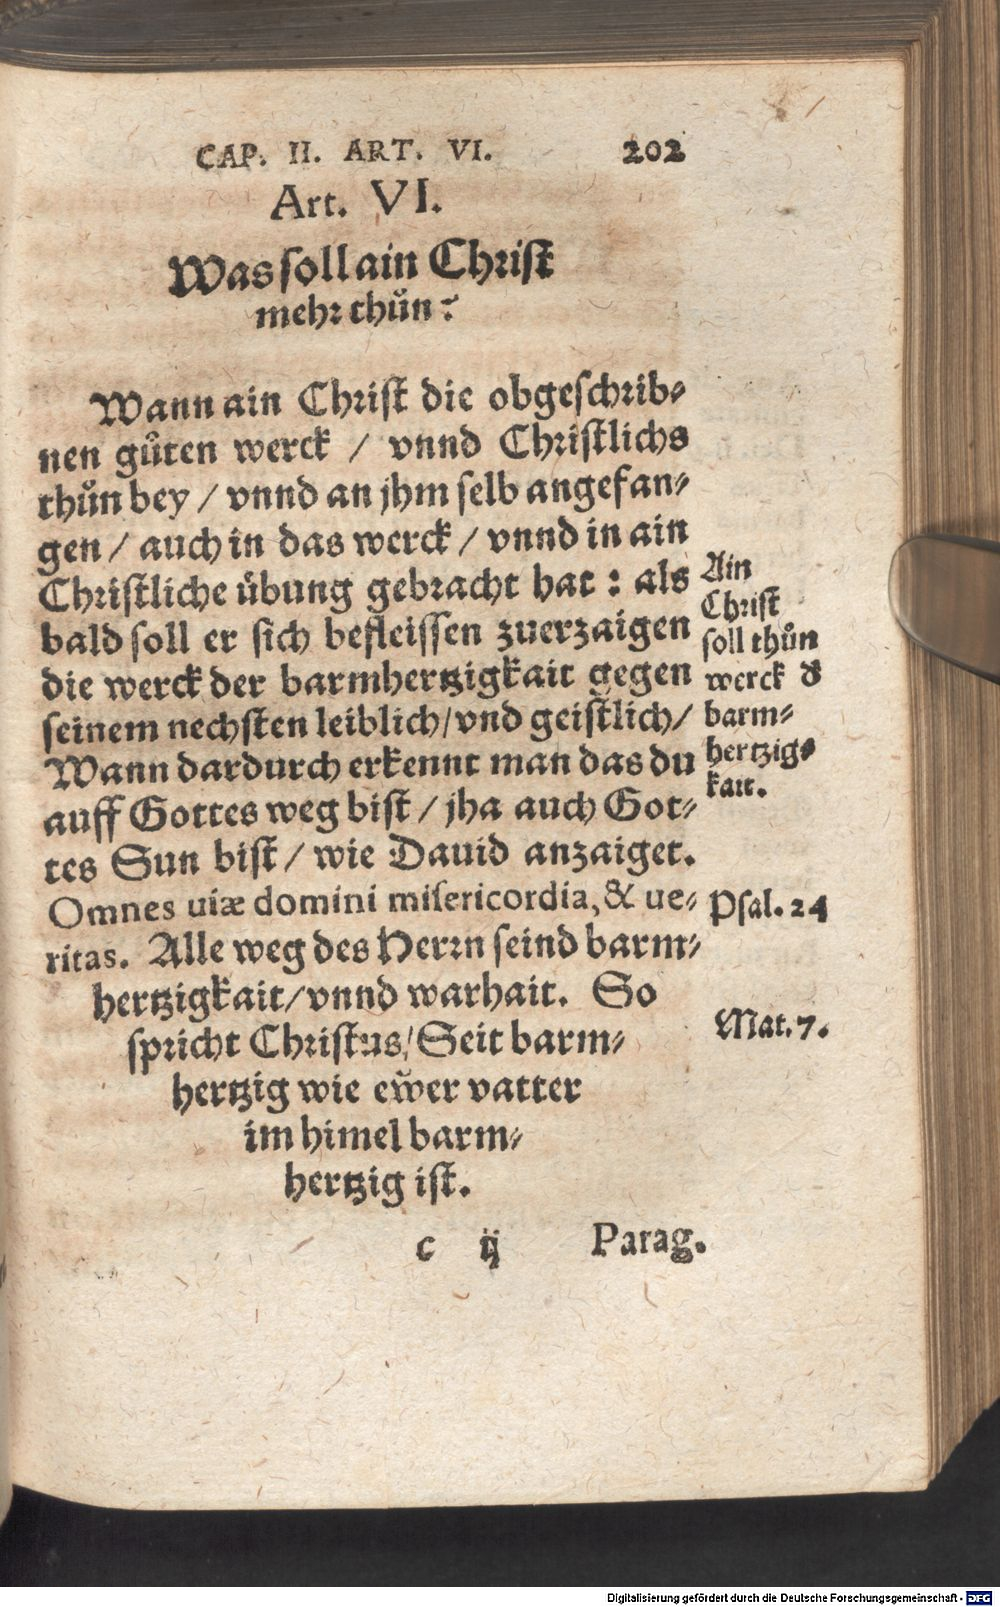 CAP. II. ART. VI. 202
Art. VI.
Was soll ain Christ
mehr thůn?
Wann ain Christ die obgeschrib⸗
nen gůten werck / vnnd Christlichs
thůn bey / vnnd an jhm selb angefan⸗
gen / auch in das werck / vnnd in ain
Christliche übung gebracht hat : als
bald soll er sich befleissen zuerzaigen
die werck der barmhertzigkait gegen
seinem nechsten leiblich/vnd geistlich/
Wann dardurch erkennt man das du
auff Gottes weg bist / jha auch Got⸗
tes Sun bist / wie Dauid anzaiget.
Omnes uiæ domini misericordia, & ue⸗
ritas. Alle weg des Herrn seind barm⸗
hertzigkait/vnnd warhait. So
spricht Christus/Seit barm⸗
hertzig wie ewer vatter
im himel barm⸗
hertzig ist.
Ain
Christ
soll thůn
werck d
barm⸗
hertzig⸗
kait.
Psal. 24
Mat. 7.
c ij Parag.
Digitalisierung gefördert durch die Deutsche Forschungsgemeinschaft - DFG